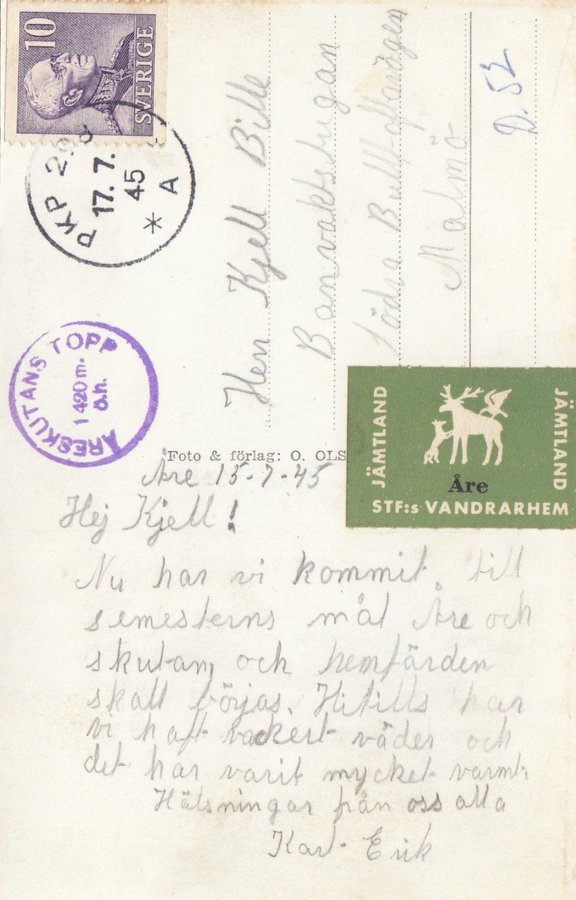 10
SVERIGE
PKP 29
17. 7.
45
* A
ÅRESKUTANS TOPP
1420 m.
ö.h.
Herr Kjell Bille
Banvaktstugan
Södra Bulltoftavägen
Malmö
D. 52
Foto & förlag: O. OLS
JÄMTLAND
JÄMTLAND
Åre
STF:s VANDRARHEM
Åre 15-7-45
Hej Kjell!
Nu har vi kommit till
semesterns mål Åre och
skutan, och hemfärden
skall börjas. Hitills har
vi haft vackert väder och
det har varit mycket varmt.
Hälsningar från oss alla
Karl-Erik